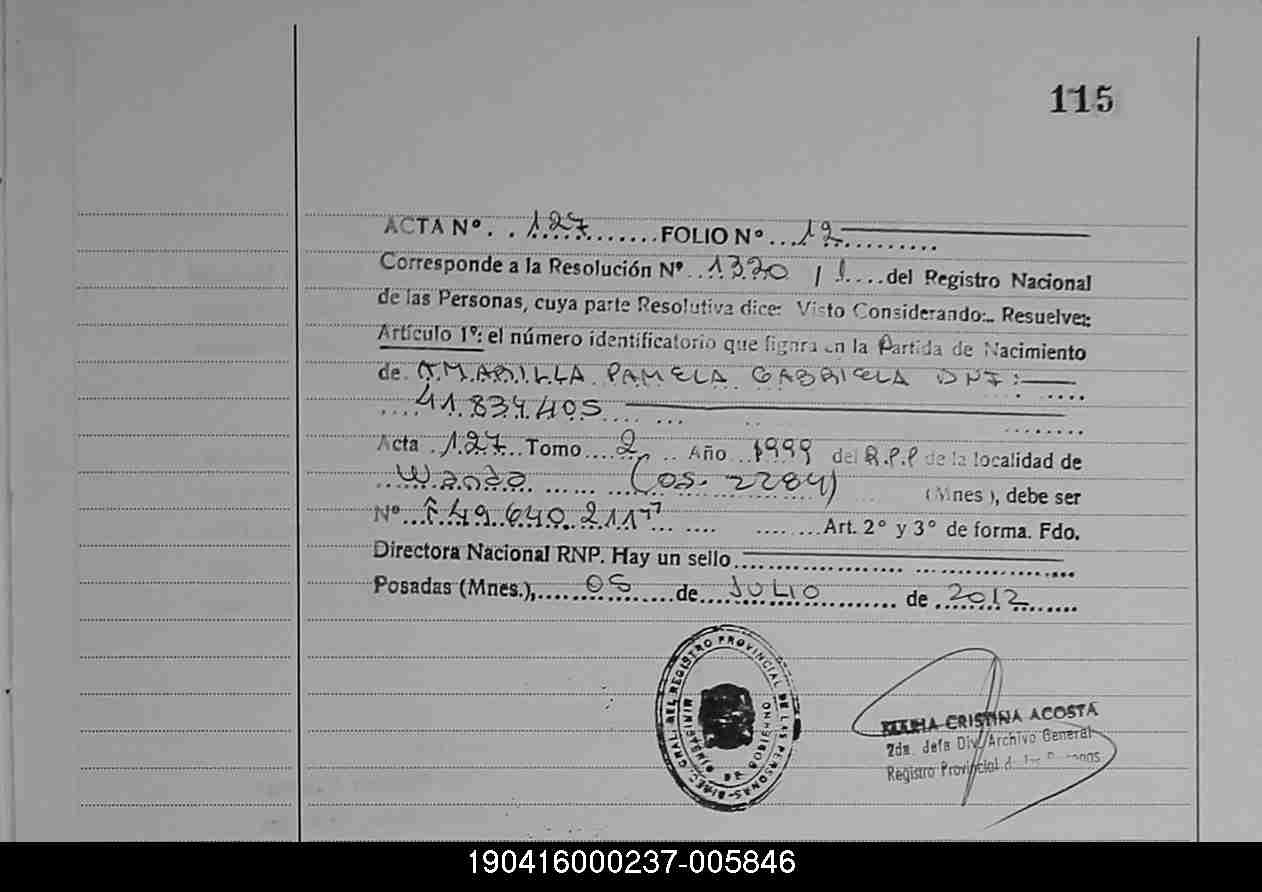 115
ACTA Nº. . .127.......FOLIO Nº...12..........
Corresponde a la Resolución Nº ..1320 / 1....del Registro Nacional
de las Personas, cuya parte Resolutiva dice: Visto Considerando:.. Resuelve:
Artículo 1º: el número identificatorio que figura en la Partida de Nacimiento
de. AMARILLA PAMELA GABRIELA DNI:
....41.834.405
Acta .127.. Tomo....2. .. Año ..1999 del R.P.P de la localidad de
...Wanda...... (OS. 2284) (Mnes ), debe ser
Nº... 49.640.211... .... .......Art. 2° y 3° de forma. Fdo.
Directora Nacional RNP. Hay un sello
Posadas (Mnes.),.....05.......de....JULIO.......... de ..2012.......
DIREC. GRAL. DEL REGISTRO PROVINCIAL DE LAS PERSONAS
MINISTERIO DE GOBIERNO
MARIA CRISTINA ACOSTA
2da. Jefa Div. Archivo General
Registro Provincial de las Personas
190416000237-005846